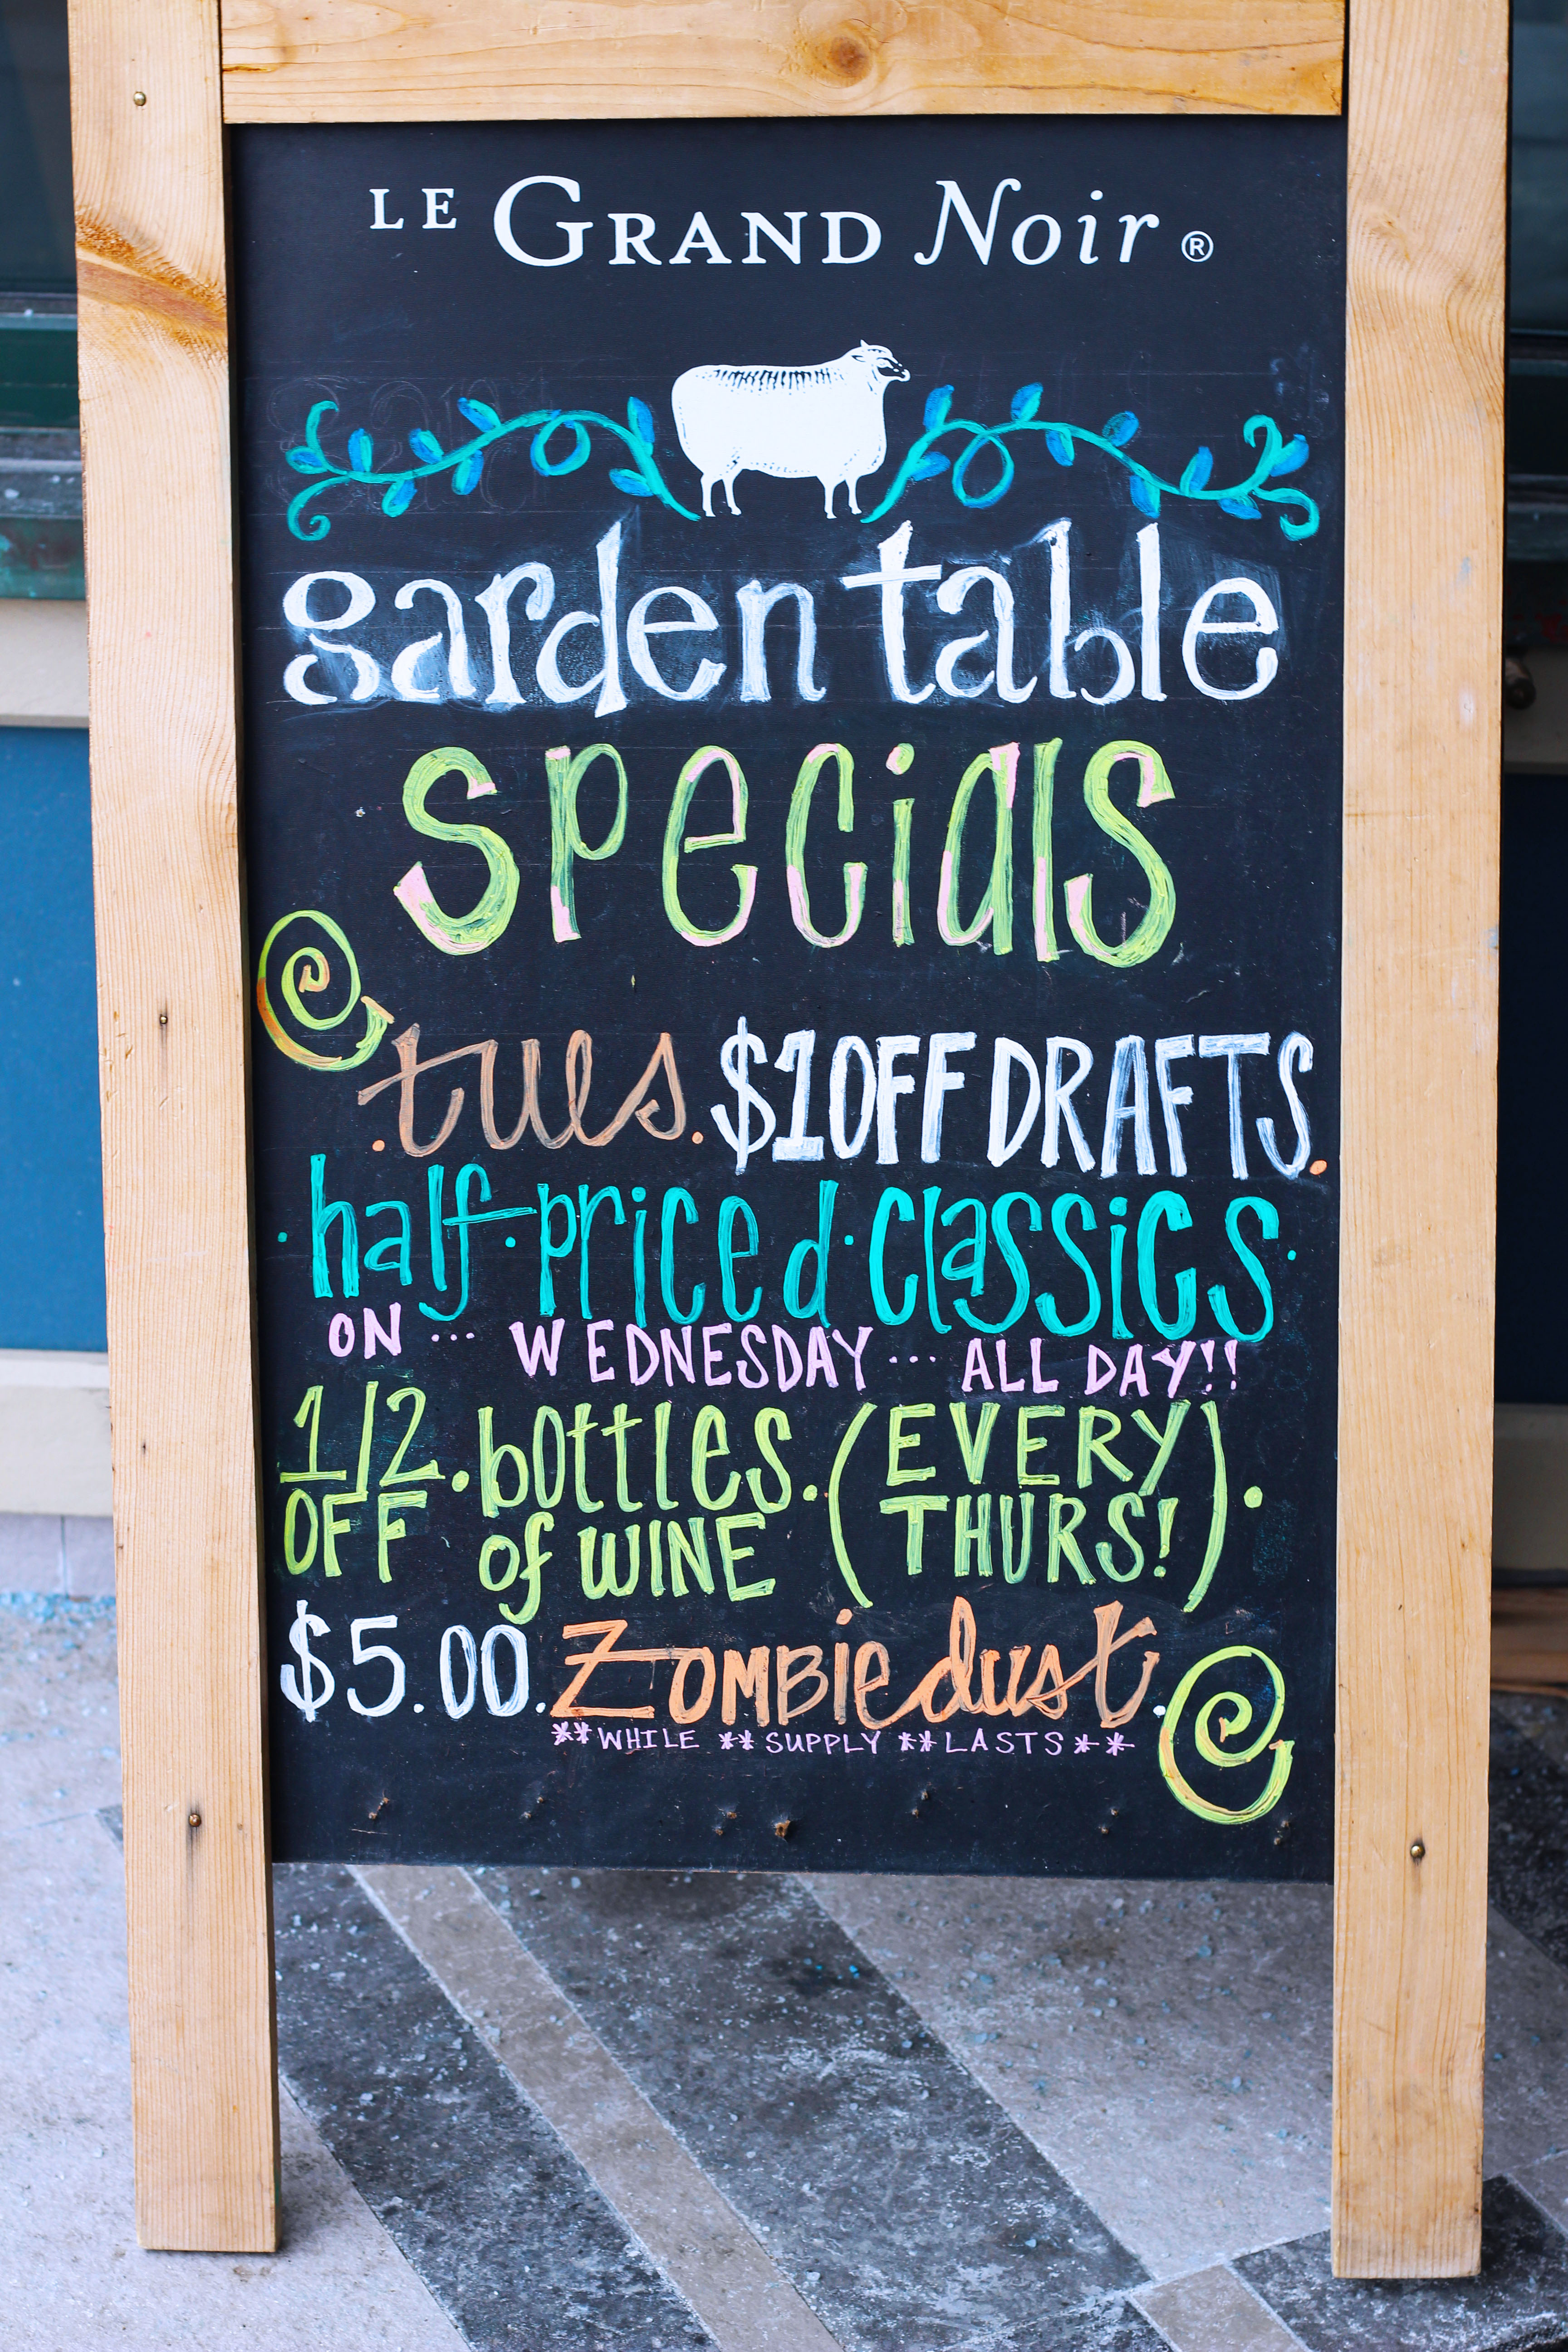 LE GRAND Noir ®
garden table
specials
. tues. $1 OFF DRAFTS.
· half · priced · classics ·
ON ... WEDNESDAY ... ALL DAY!!
1/2 OFF . bottles of WINE . (EVERY THURS!) .
$5.00. Zombie dust.
** WHILE ** SUPPLY ** LASTS **